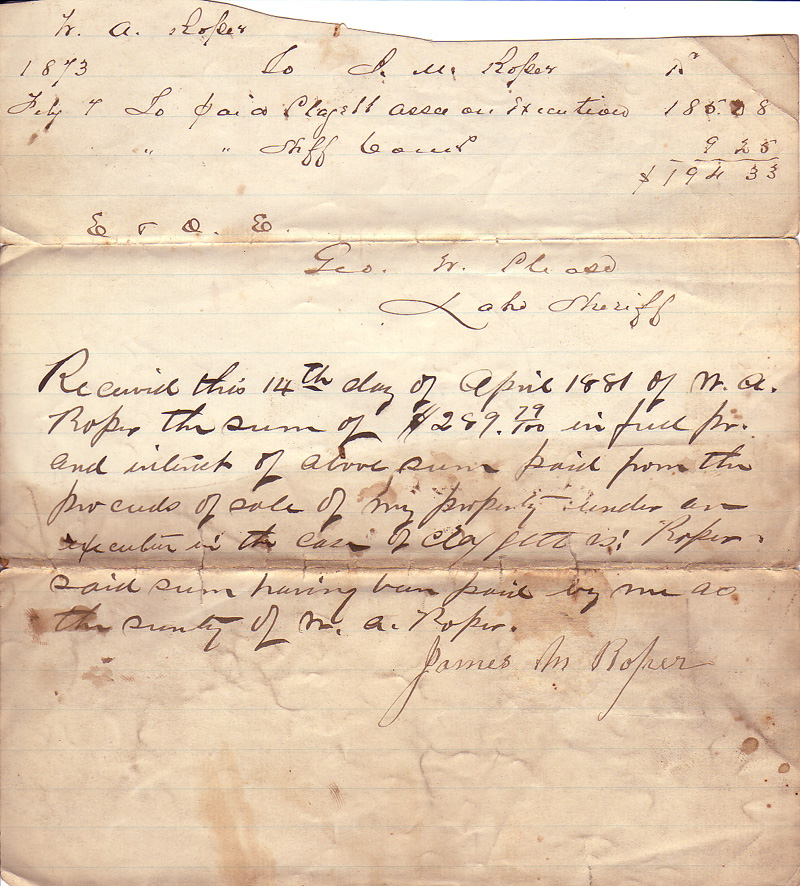 W. A. Roper
1873 To J. M. Roper Dr
Feby 7 To paid Clagett assee on Execution 185.08
" " Shff Coms 9 25
$194 33
E & O. E.
Geo. W. Chease
Late Sheriff
Received this 14th day of April 1881 of W. A.
Roper the sum of $289.79/100 in full pr.
and interest of above sum paid from the
proceeds of sale of my property under an
execution in the case of Claggett vs. Roper.
said sum having been paid by me as
the surety of W. A. Roper.
James M Roper